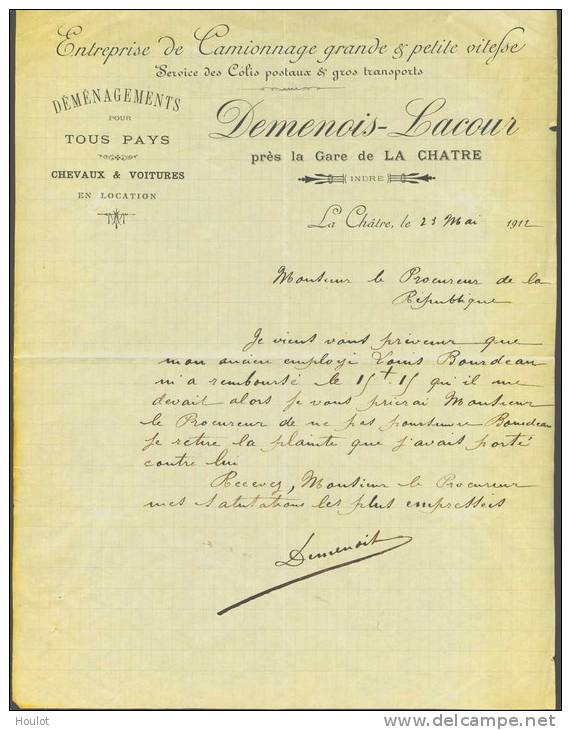 Entreprise de Camionnage grande & petite vitesse
Service des Côlis postaux & gros transports
DÉMÉNAGEMENTS
POUR
TOUS PAYS
CHEVAUX & VOITURES
EN LOCATION
Demenois-Lacour
près la Gare de LA CHATRE
INDRE
La Châtre, le 23 Mai 1912
Monsieur le Procureur de la
République
Je vient vous préveneur que
mon ancien employé Louis Bourdeau
m'a remboursé le 15f.15 qu'il me
devait alors je vous prierai Monsieur
le Procureur de ne pas poursuivre Bourdeau
je retire la plainte que j'avais porté
contre lui
Recevez, Monsieur le Procureur
mes salutations les plus empressées
Demenois
Houlot
delcampe.net